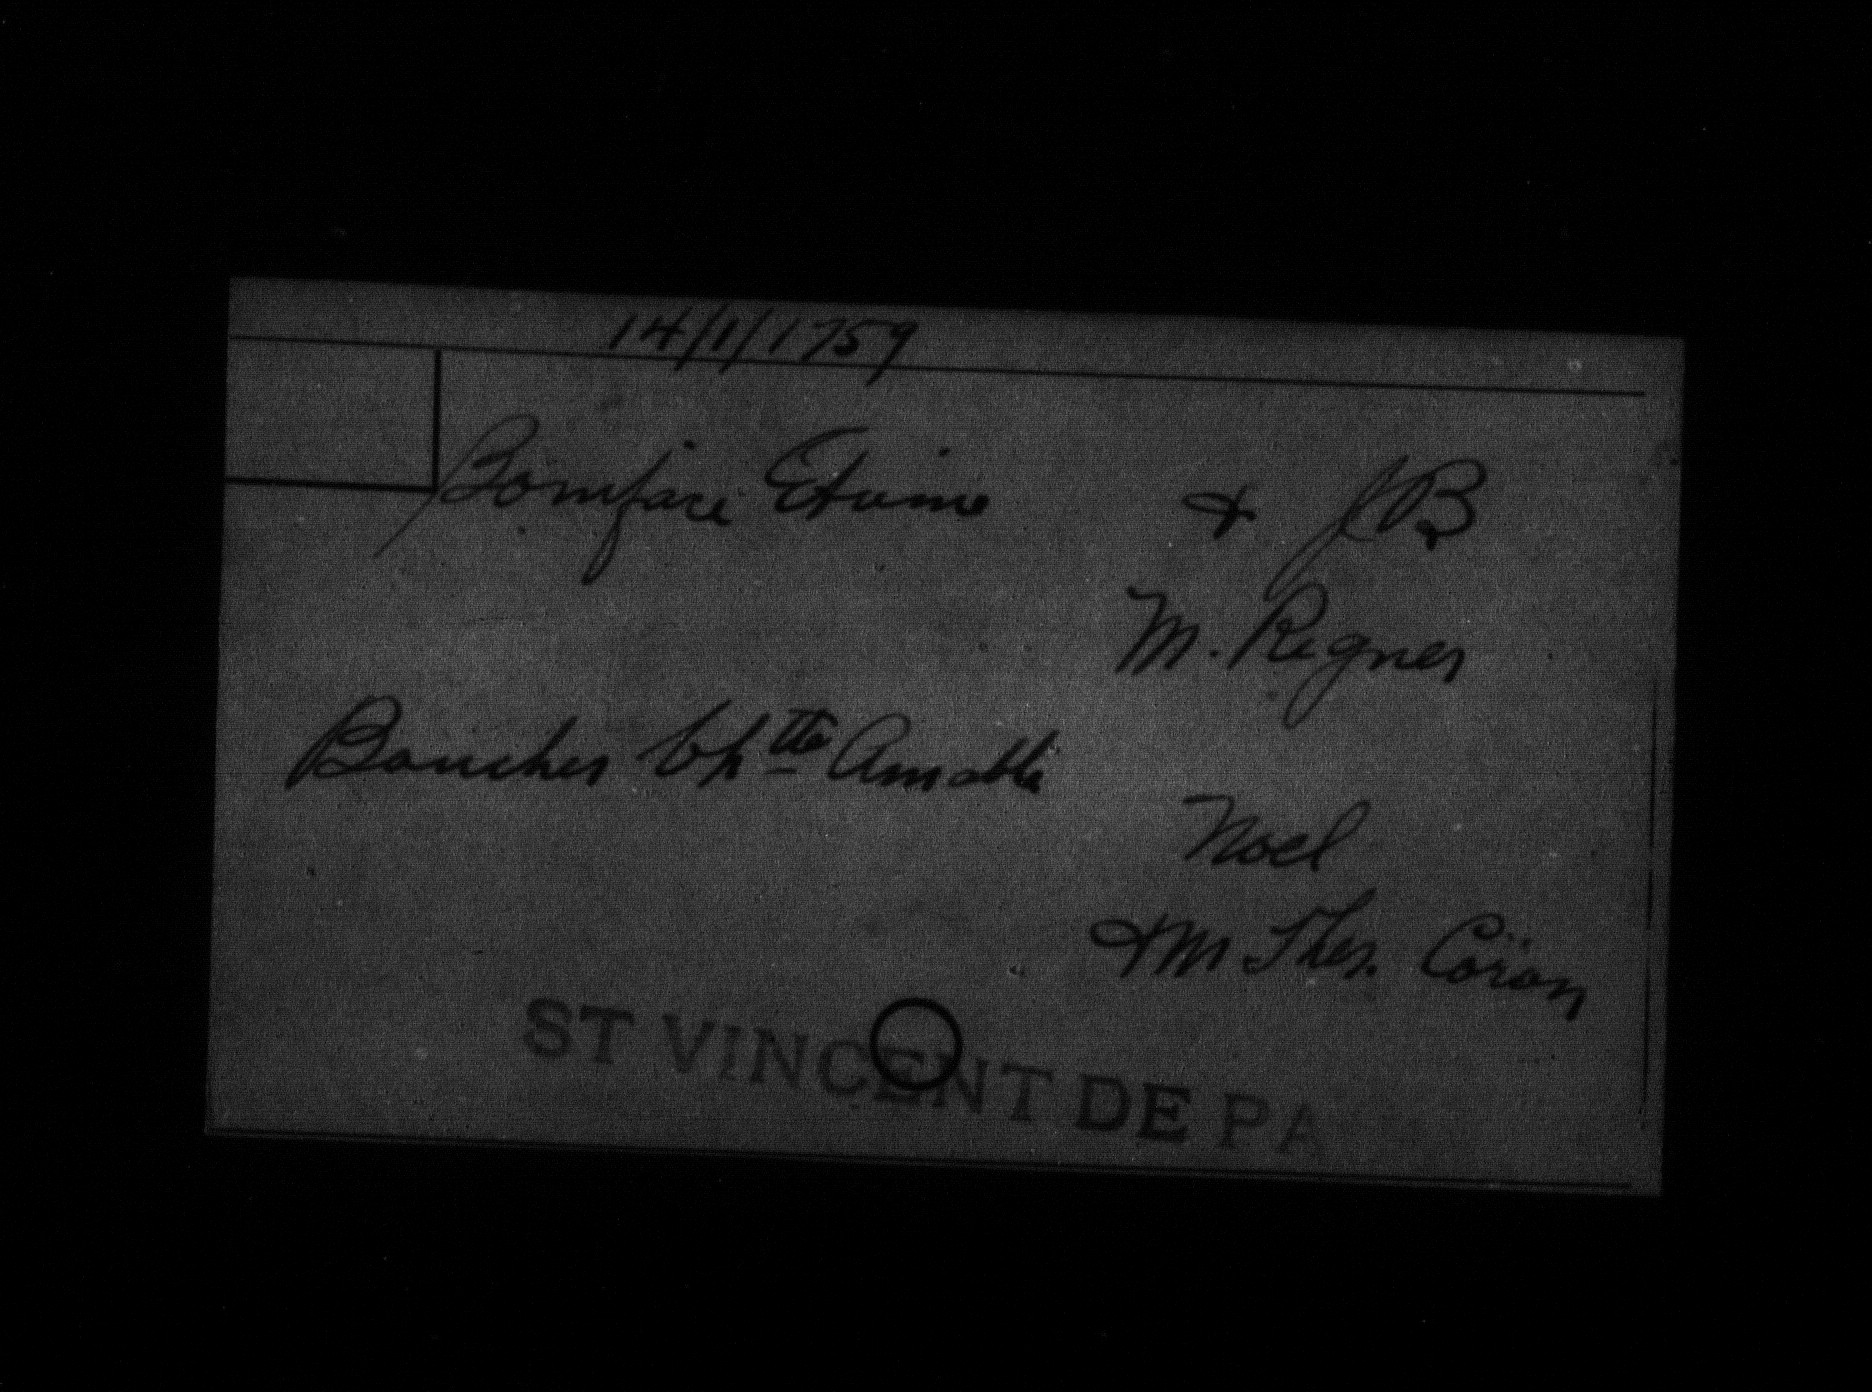 14/1/1759
Boniface Etienne & JB
M. Regner
Boucher Chtte Amable
Noel
& M Ther. Coron
ST VINCENT DE PA